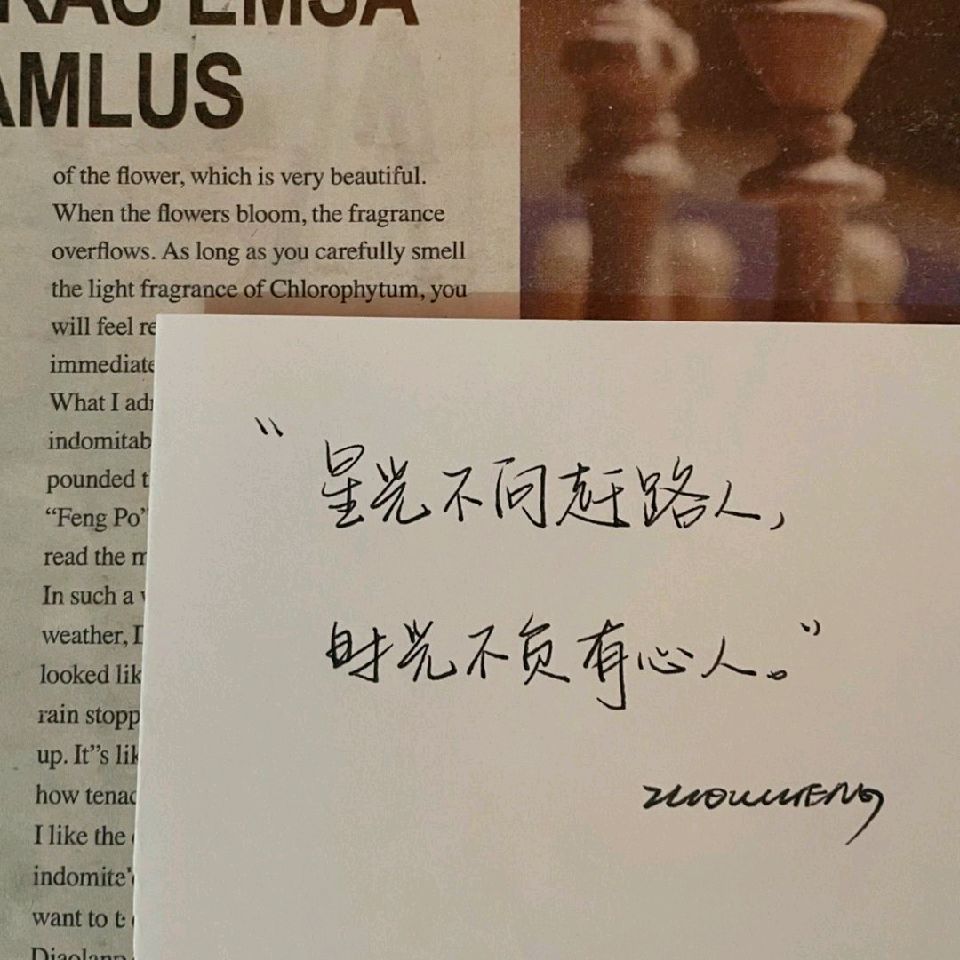 AMLUS
of the flower, which is very beautiful.
When the flowers bloom, the fragrance
overflows. As long as you carefully smell
the light fragrance of Chlorophytum, you
will feel
immediate
What I
indomitab
pounded
“Feng Po”
read the
In such a
weather,
looked lik
rain stopp
up. It”s lik
how tenac
I like the
indomite
want to
“星光不问赶路人,
时光不负有心人。”